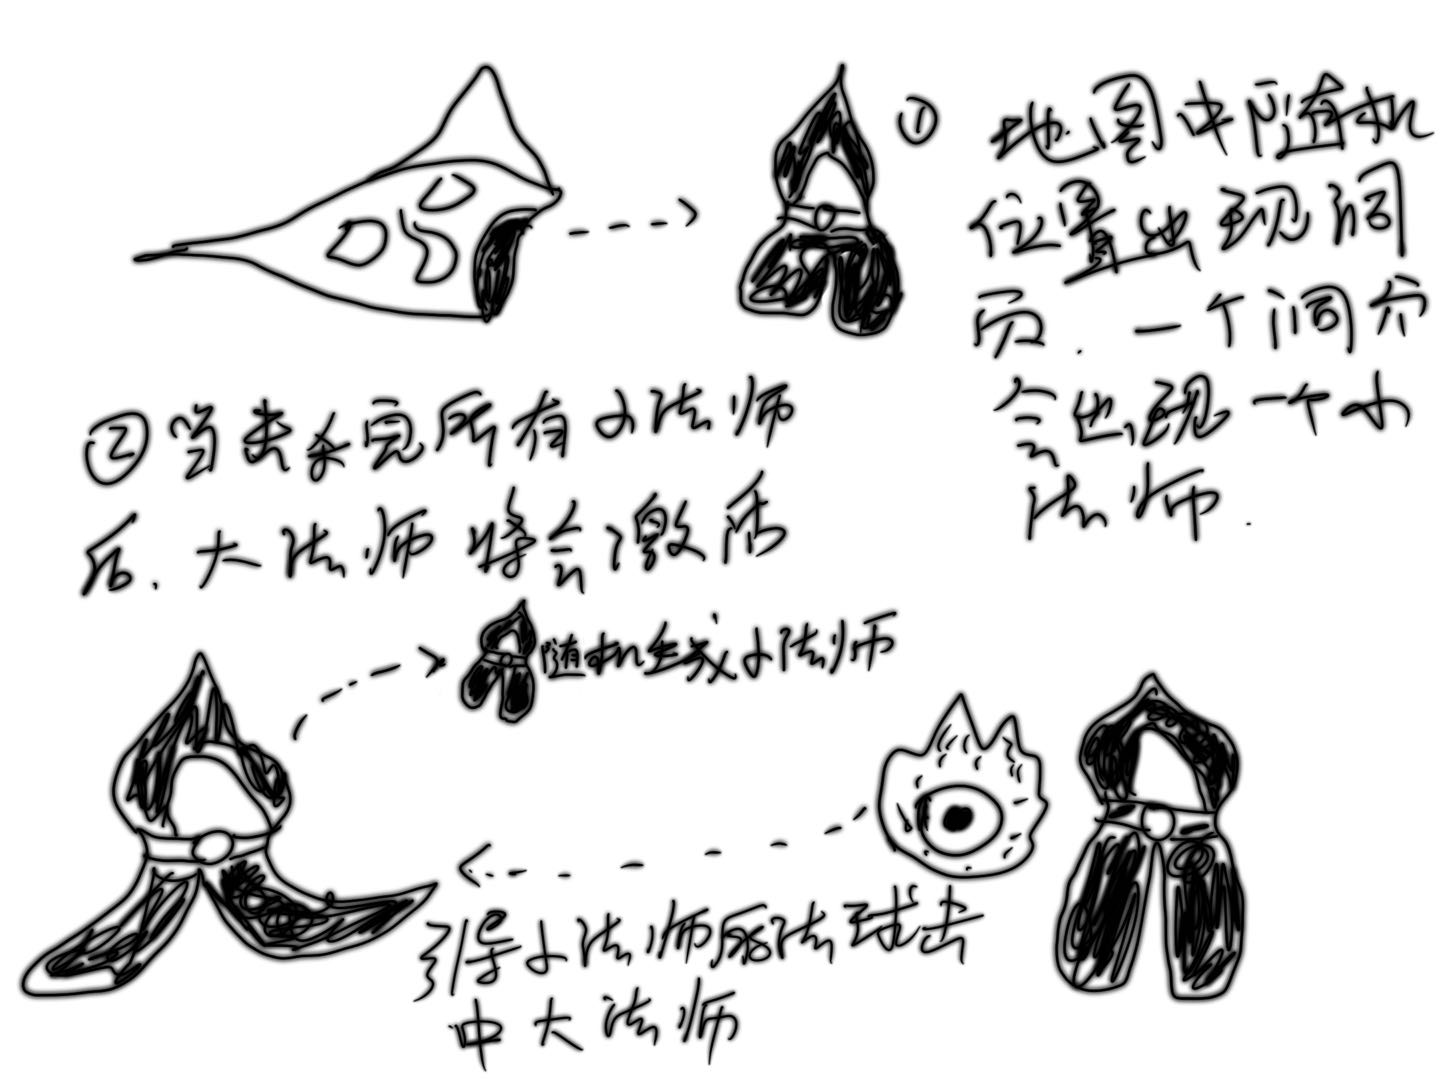 ① 地图中随机
位置出现洞
穴.一个洞穴
会出现一个小
法师.
②当击杀完所有小法师
后.大法师将会激活
随机生成小法师
引导小法师用法球击
中大法师